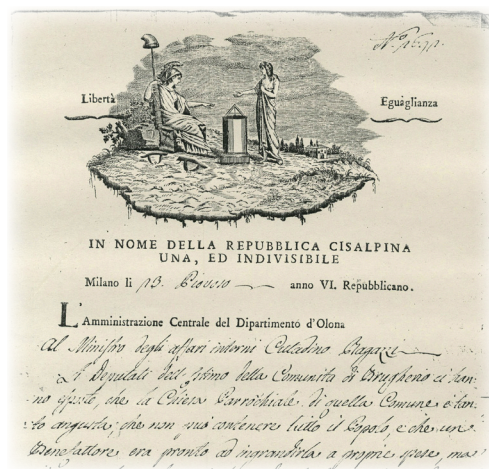 Libertà
Eguaglianza
IN NOME DELLA REPUBBLICA CISALPINA
UNA, ED INDIVISIBILE
Milano li 13 Piovoso anno VI. Repubblicano.
L'Amministrazione Centrale del Dipartimento d'Olona
Al Ministro degli affari interni Cittadino Ragazzi
I Deputati dell' Estimo della Comunità di Brugherio ci han-
no esposto, che la Chiesa Parrochiale di quella Comune è tan-
to angusta, che non può contenere tutto il Popolo e che un
Benefattore era pronto ad ingrandirla a proprie spese, ma